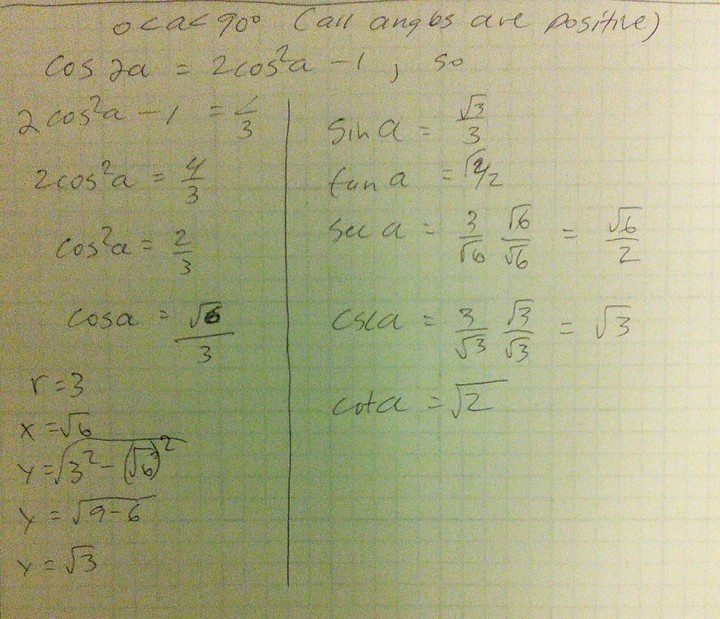 0<a<90° (all angles are positive)
cos 2a = 2cos²a - 1, so
2cos²a - 1 = 1/3
2cos²a = 4/3
cos²a = 2/3
cosa = √6/3
r=3
x=√6
y=√3²-(√6)²
y=√9-6
y=√3
sina = √3/3
tana = √2/2
seca = 3/√6 √6/√6 = √6/2
csca = 3/√3 √3/√3 = √3
cota = √2